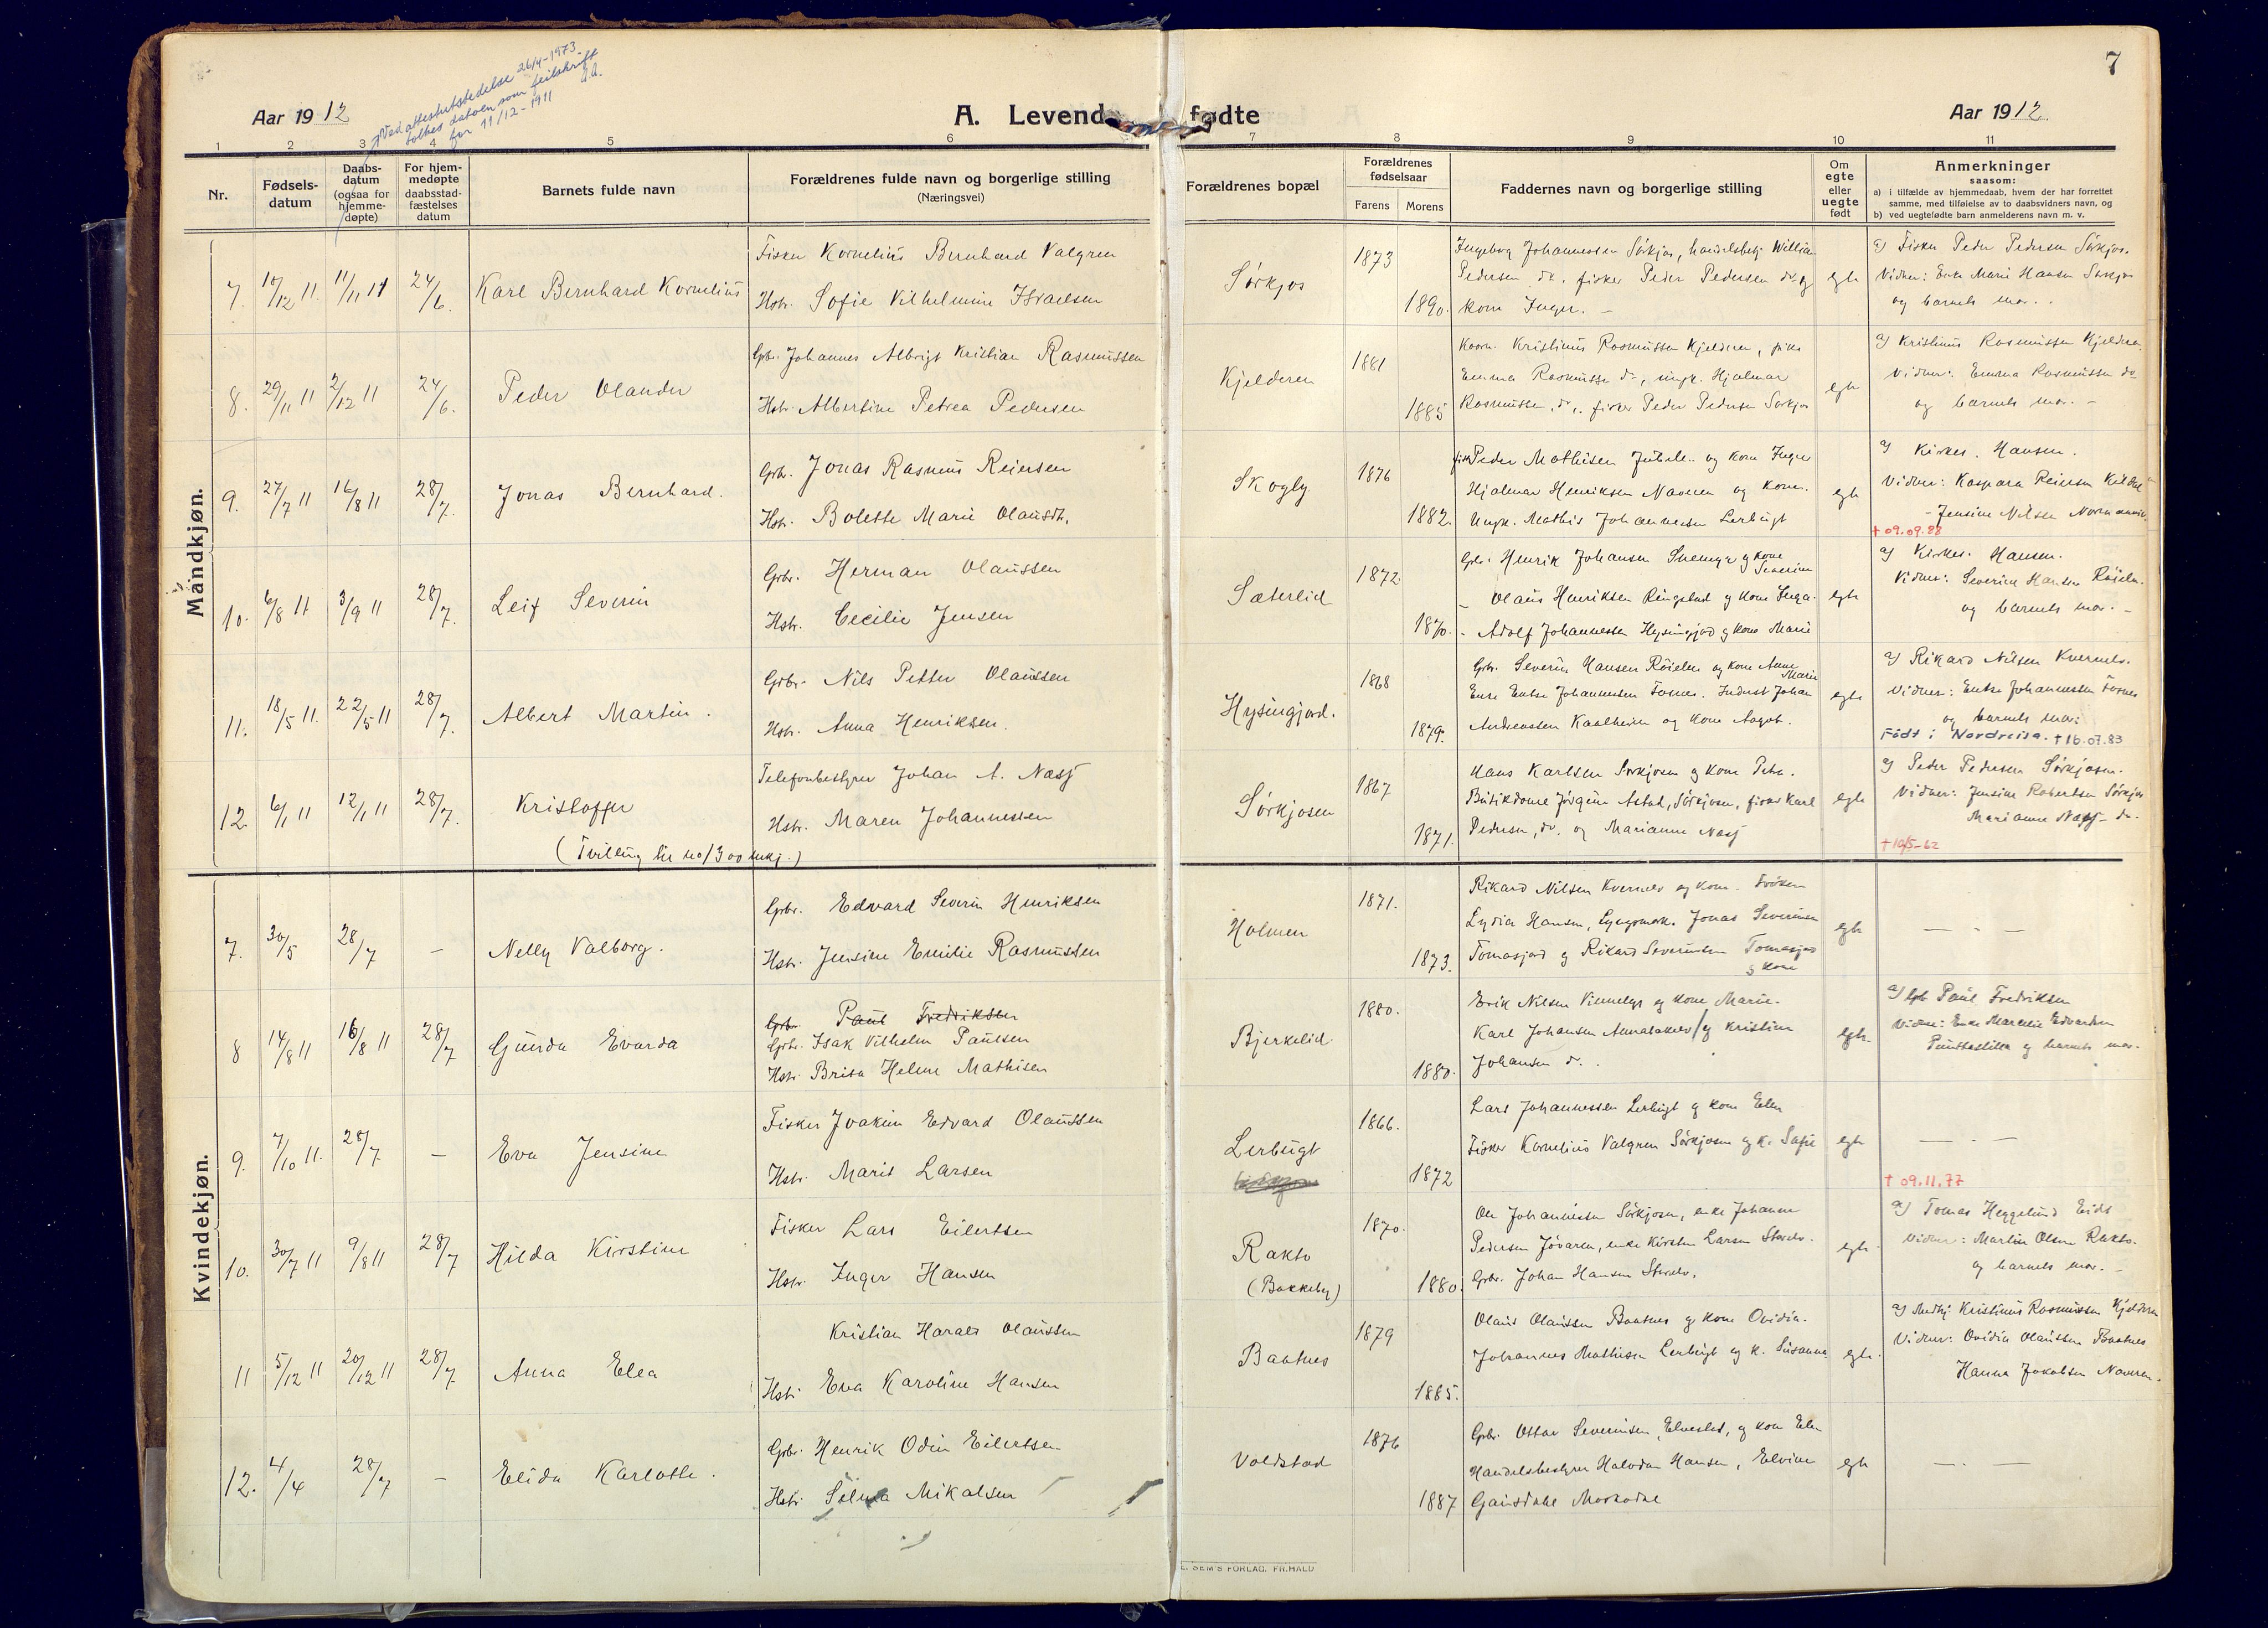 7
Ved attestutstedelse 26/4-1973
tolkes datoen som feilskrift
for 11/12-1911
Aar 1912
A. Levende fødte
Aar 1912
1 2 3 4 5 6 7 8 9 10 11
Nr.
Fødsels-
datum
Daabs-
datum
(ogsaa for
hjemme-
døpte)
For hjem-
medøpte
daabsstad-
fæstelses
datum
Barnets fulde navn
Forældrenes fulde navn og borgerlige stilling
(Næringsvei)
Forældrenes bopæl
Forældrenes
fødselsaar
Farens Morens
Faddernes navn og borgerlige stilling
Om
egte
eller
uegte
født
Anmerkninger
saasom:
a) i tilfælde av hjemmedaab, hvem der har forrettet
samme, med tilføielse av to daabsvidners navn, og
b) ved uegtefødte barn anmelderens navn m. v.
Mandkjøn.
7. 10/12 11. 11/11 11 24/6. Karl Bernhard Kornelius
Fisker Kornelius Bernhard Valgren
Hstr. Sofie Vilhelmine Israelsen
Sørkjos
1873
1890.
Ingeborg Johannessen Sørkjos, handelsbetj. William
Pedersen do. fisker Peder Pedersen do. og
kone Inger. -
egte
a) Fisker Peder Pedersen Sørkjos.
Vidner: Enke Marie Hansen Sørkjos
og barnets mor.
8. 29/11 11 2/12 11 24/6. Peder Olander
Gbr. Johannes Albrigt Kristian Rasmussen
Hstr. Albertine Petrea Pedersen
Kjelderen
1881
1885
Kaarm. Kristinus Rasmussen Kjelderen, pike
Emma Rasmussen do, ungk. Hjalmar
Rasmussen, do, fisker Peder Pedersen Sørkjos
egte
a) Kristinus Rasmussen Kjelderen.
Vidner: Emma Rasmussen do
og barnets mor. -
9. 27/7 11 16/8 11 28/7. Jonas Bernhard.
Gbr. Jonas Rasmus Reiersen
Hstr. Bolette Marie Olausdt.
Skogly
1876
1882.
Peder Mathisen og kone Inger
Hjalmar Henriksen Naveren og kone.
Ungk. Mathis Johannesen Lerbugt
egte
a) Kirkes. Hansen.
Vidner: Kaspara Reiersen
- Jensine Nilsen
† 09.09.88
10. 6/8 11 3/9 11 28/7. Leif Severin
Gbr. Herman Olaussen
Hstr. Cecilie Jensen
Sæterlid
1872.
1870.
Gbr. Henrik Johansen Snemyr og kone
Severine
- Olaus Henriksen Ringstad og kone Inga.
- Adolf Johannessen Hysingjord og kone Marie
egte
a) Kirkes. Hansen.
Vidner: Severin Hansen Røieln.
og barnets mor. -
11. 18/5 11. 22/5 11 28/7. Albert Martin.
Grbr. Nils Petter Olaussen
Hstr. Anna Henriksen.
Hysingjord.
1868
1879.
Grbr. Severin Hansen Røielen og kone Anne
Marie
Enke Johannessen Fosnes. Johan
Andreassen Kaalheim og kone Aagot.
egte
a) Rikard Nilsen Kvernelv.
Vidner: Johannessen Fosnes
og barnets mor.
Født i Nordreisa. † 16.07.83
12. 6/1 11 12/1 11 28/7. Kristoffer
(Tvilling til no/3 00 mkj.)
Telefonbestyrer Johan A. Næsj
Hstr. Maren Johannessen
Sørkjosen
1867
1871.
Hans Karlsen Sørkjosen og kone Petra.
Butikdame Jørgine Astad, Sørkjosen, fisker Karl
Pedersen, do. og Marianne Næsj
egte
a) Peder Pedersen Sørkjosen.
Vidner: Jensine Robertsen Sørkjos
Marianne Næsj - do.
† 10/5-62
Kvindekjøn.
7. 30/5 28/7 - Nelly Valborg.
Gbr. Edvard Severin Henriksen
Hstr. Jensine Emilie Rasmussen
Holmen
1871.
1873.
Rikard Nilsen Kvernelv og kone. Frøken
Lydia Hansen, Jonas Severinsen
Tomasjord og Rikard Severinsen Tomasjord
og kone
egte
— - —
8 14/8 11 16/8 11 28/7 Gunda Evarda
Gbr. Paul Fredriksen
Gbr. Isak Vilhelm Paulsen
Hstr. Brita Helene Mathisen
Bjerkelid
1880.
1880.
Erik Nilsen og kone Marie.
Karl Johansen og Kristine
Johansen do.
egte
a) Gbr Paul Fredriksen
Vidner: Enke Edvardsen
og barnets mor.
9. 7/10 11. 28/7 - Eva Jensine
Fisker Joakim Edvard Olaussen
Hstr. Marit Larsen
Lerbugt
1866.
1872
Lars Johannessen Lerbugt og kone Elen
Fisker Kornelius Valgren Sørkjosen og k. Sofie
egte
— - —
† 09.11.77
10. 30/7 11 9/8 11 28/7 Hilda Kirstine
Fisker Lars Eilertsen
Hstr. Inger Hansen
Rakto
(Bakkeby)
1870.
1880
Ole Johannessen Sørkjosen, enke Johanne
Pedersen Jøvaren, enke Kirsten Larsen Storelv.
Gbr. Johan Hansen Storelv.
egte
a) Tomas Heggelund Eids
Vidner: Martin Olsen Rakto.
og barnets mor. -
11 5/12 11 20/12 11 28/7 Anna Elea
Kristian Harald Olaussen
Hstr. Eva Karoline Hansen
Baatnes
1879
1885.
Olaus Olaussen Baatnes og kone Ovidia.
Johannes Mathisen Lerbugt og k. Susanna
egte.
a) Kristinus Rasmussen Kjelderen
Vidner: Ovidia Olaussen Baatnes
Hanna Jakobsen Naveren.
12. 4/4 28/7 - Elida Karlotte.
Gbr. Henrik Odin Eilertsen
Hstr. Selma Mikalsen
Voldstad
1876
1887
Gbr. Ottar Severinsen, Elvestad, og kone Elen
Handelsbestyrer Halvdan Hansen, Elvine
Gausdahl Maskodal
egte
— - —
SEM'S FORLAG. FR. HALD